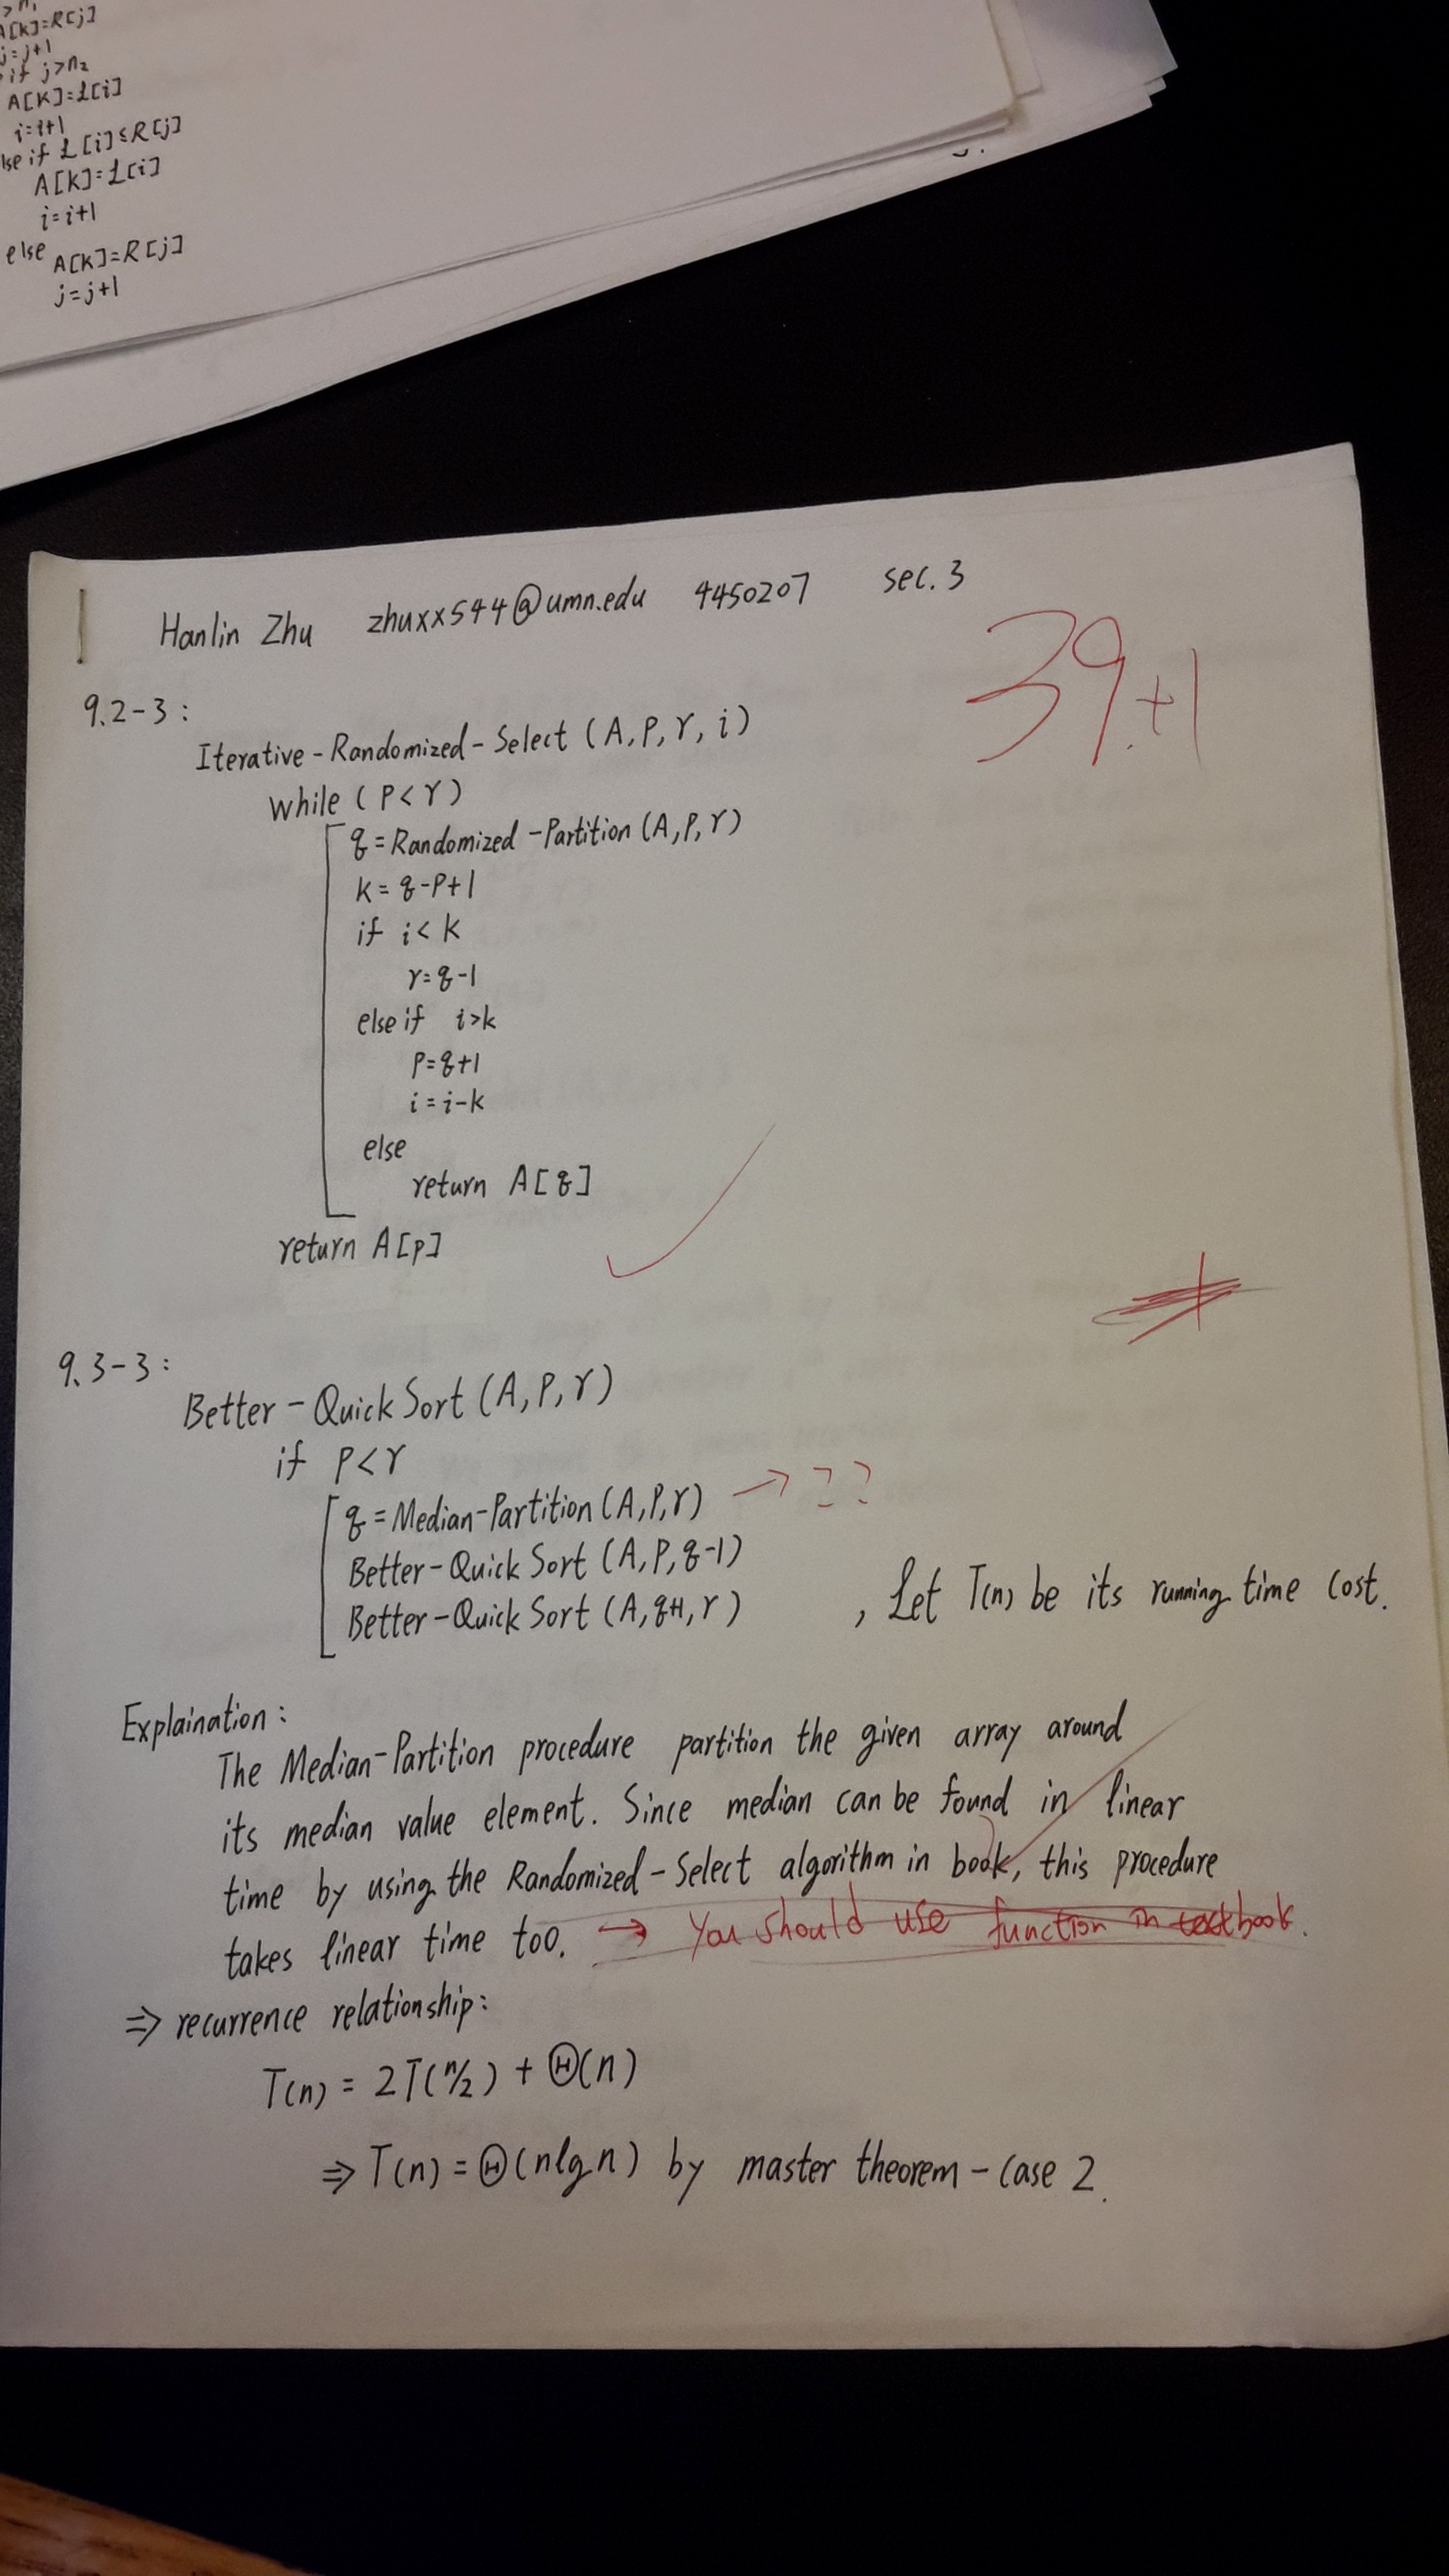 A[k]=R[j]
j=j+1
if j>n₂
A[k]=L[i]
i=i+1
lse if L[i]≤R[j]
A[k]=L[i]
i=i+1
else
A[k]=R[j]
j=j+1
Hanlin Zhu zhuxx544@umn.edu 4450207 sec.3
39.+1
9.2-3:
Iterative-Randomized-Select (A,P,r,i)
while (P<r)
q=Randomized-Partition(A,P,r)
k=q-P+1
if i<k
r=q-1
else if i>k
P=q+1
i=i-k
else
return A[q]
return A[p]
9.3-3:
Better-QuickSort(A,P,r)
if P<r
q=Median-Partition(A,P,r) → ??
Better-QuickSort (A,P,q-1)
Better-QuickSort (A,q+1,r) , Let T(n) be its running time cost.
Explaination:
The Median-Partition procedure partition the given array around
its median value element. Since median can be found in linear
time by using the Randomized-Select algorithm in book, this procedure
takes linear time too. → You should use function in textbook.
⇒ recurrence relationship:
T(n) = 2T(n/2) + Θ(n)
⇒ T(n) = Θ(nlgn) by master theorem - case 2.